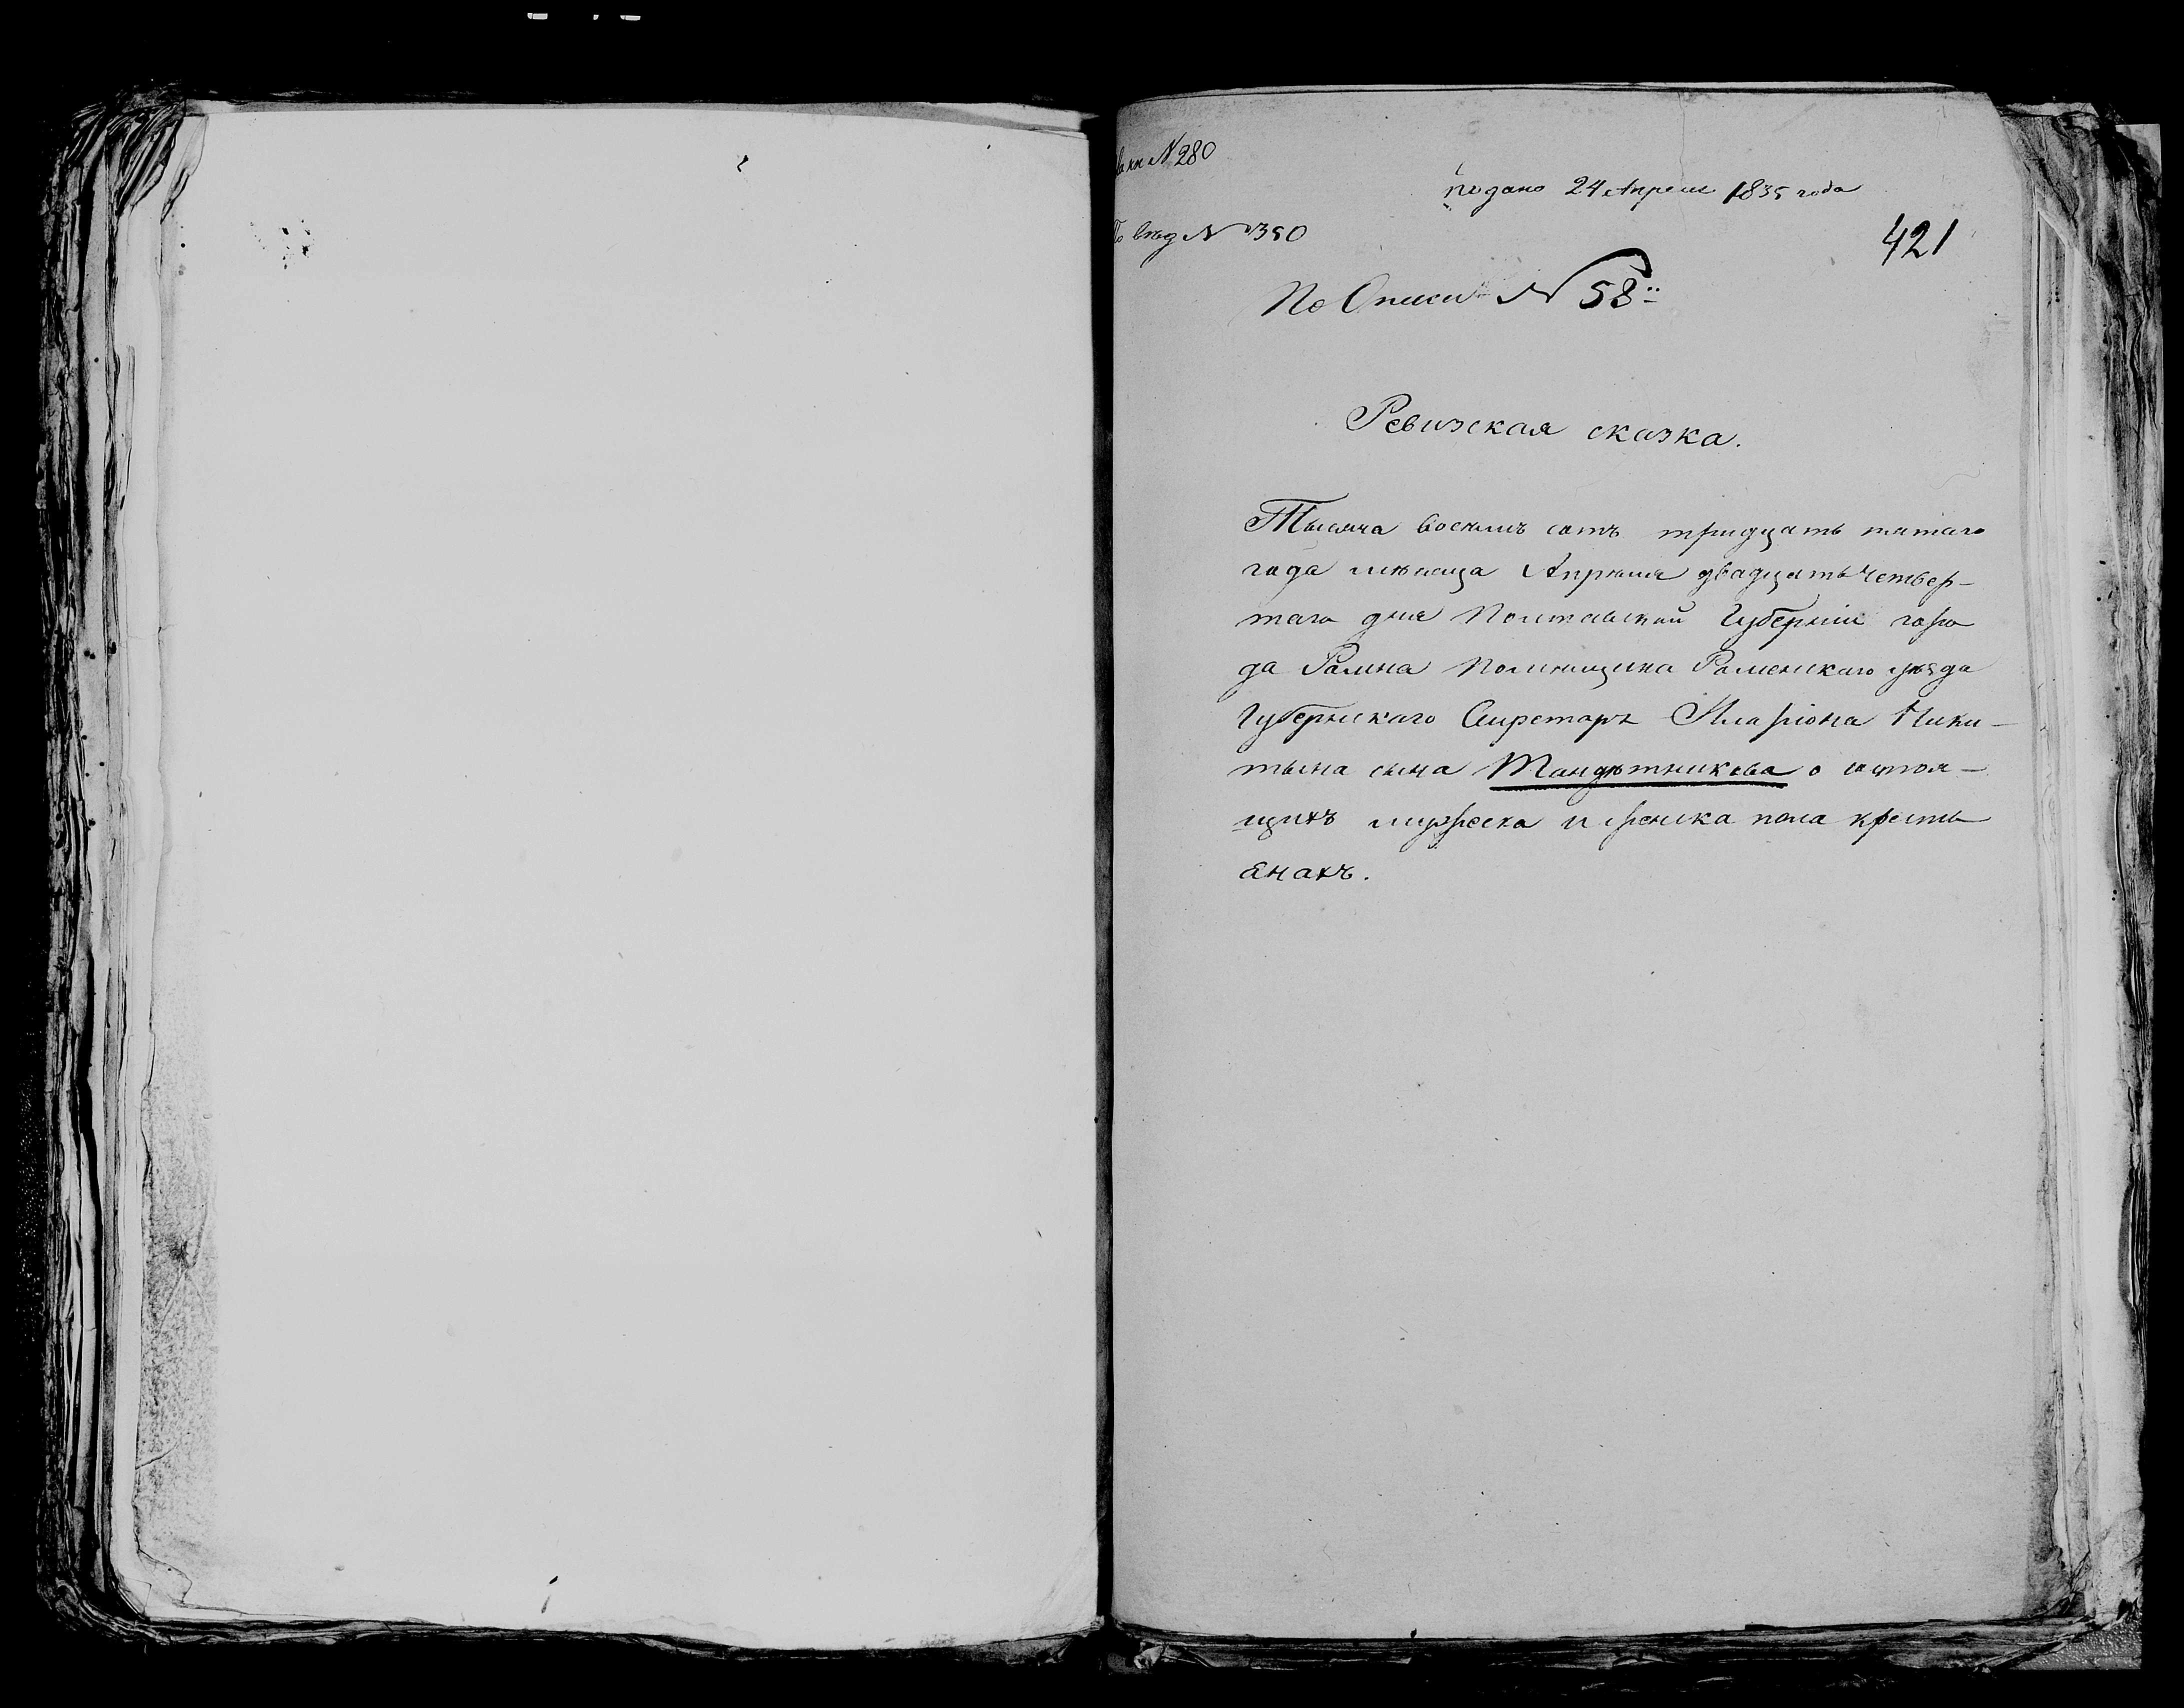 № 280
подано 24 Апреля 1835 года
По вѣд № 350
421
По Описи № 58
Ревизская сказка.
Тысяча восемь сотъ тридцать пятаго
года мѣсяца Апрѣля двадцать четвер-
таго дня Полтавской Губерніи горо
да Ромна Помѣщика Роменскаго уѣзда
Губернскаго Секретаря Иларіона Ники-
тына сына Шандѣтникова о состоя-
щихъ мужеска и женска пола кресть
янахъ.